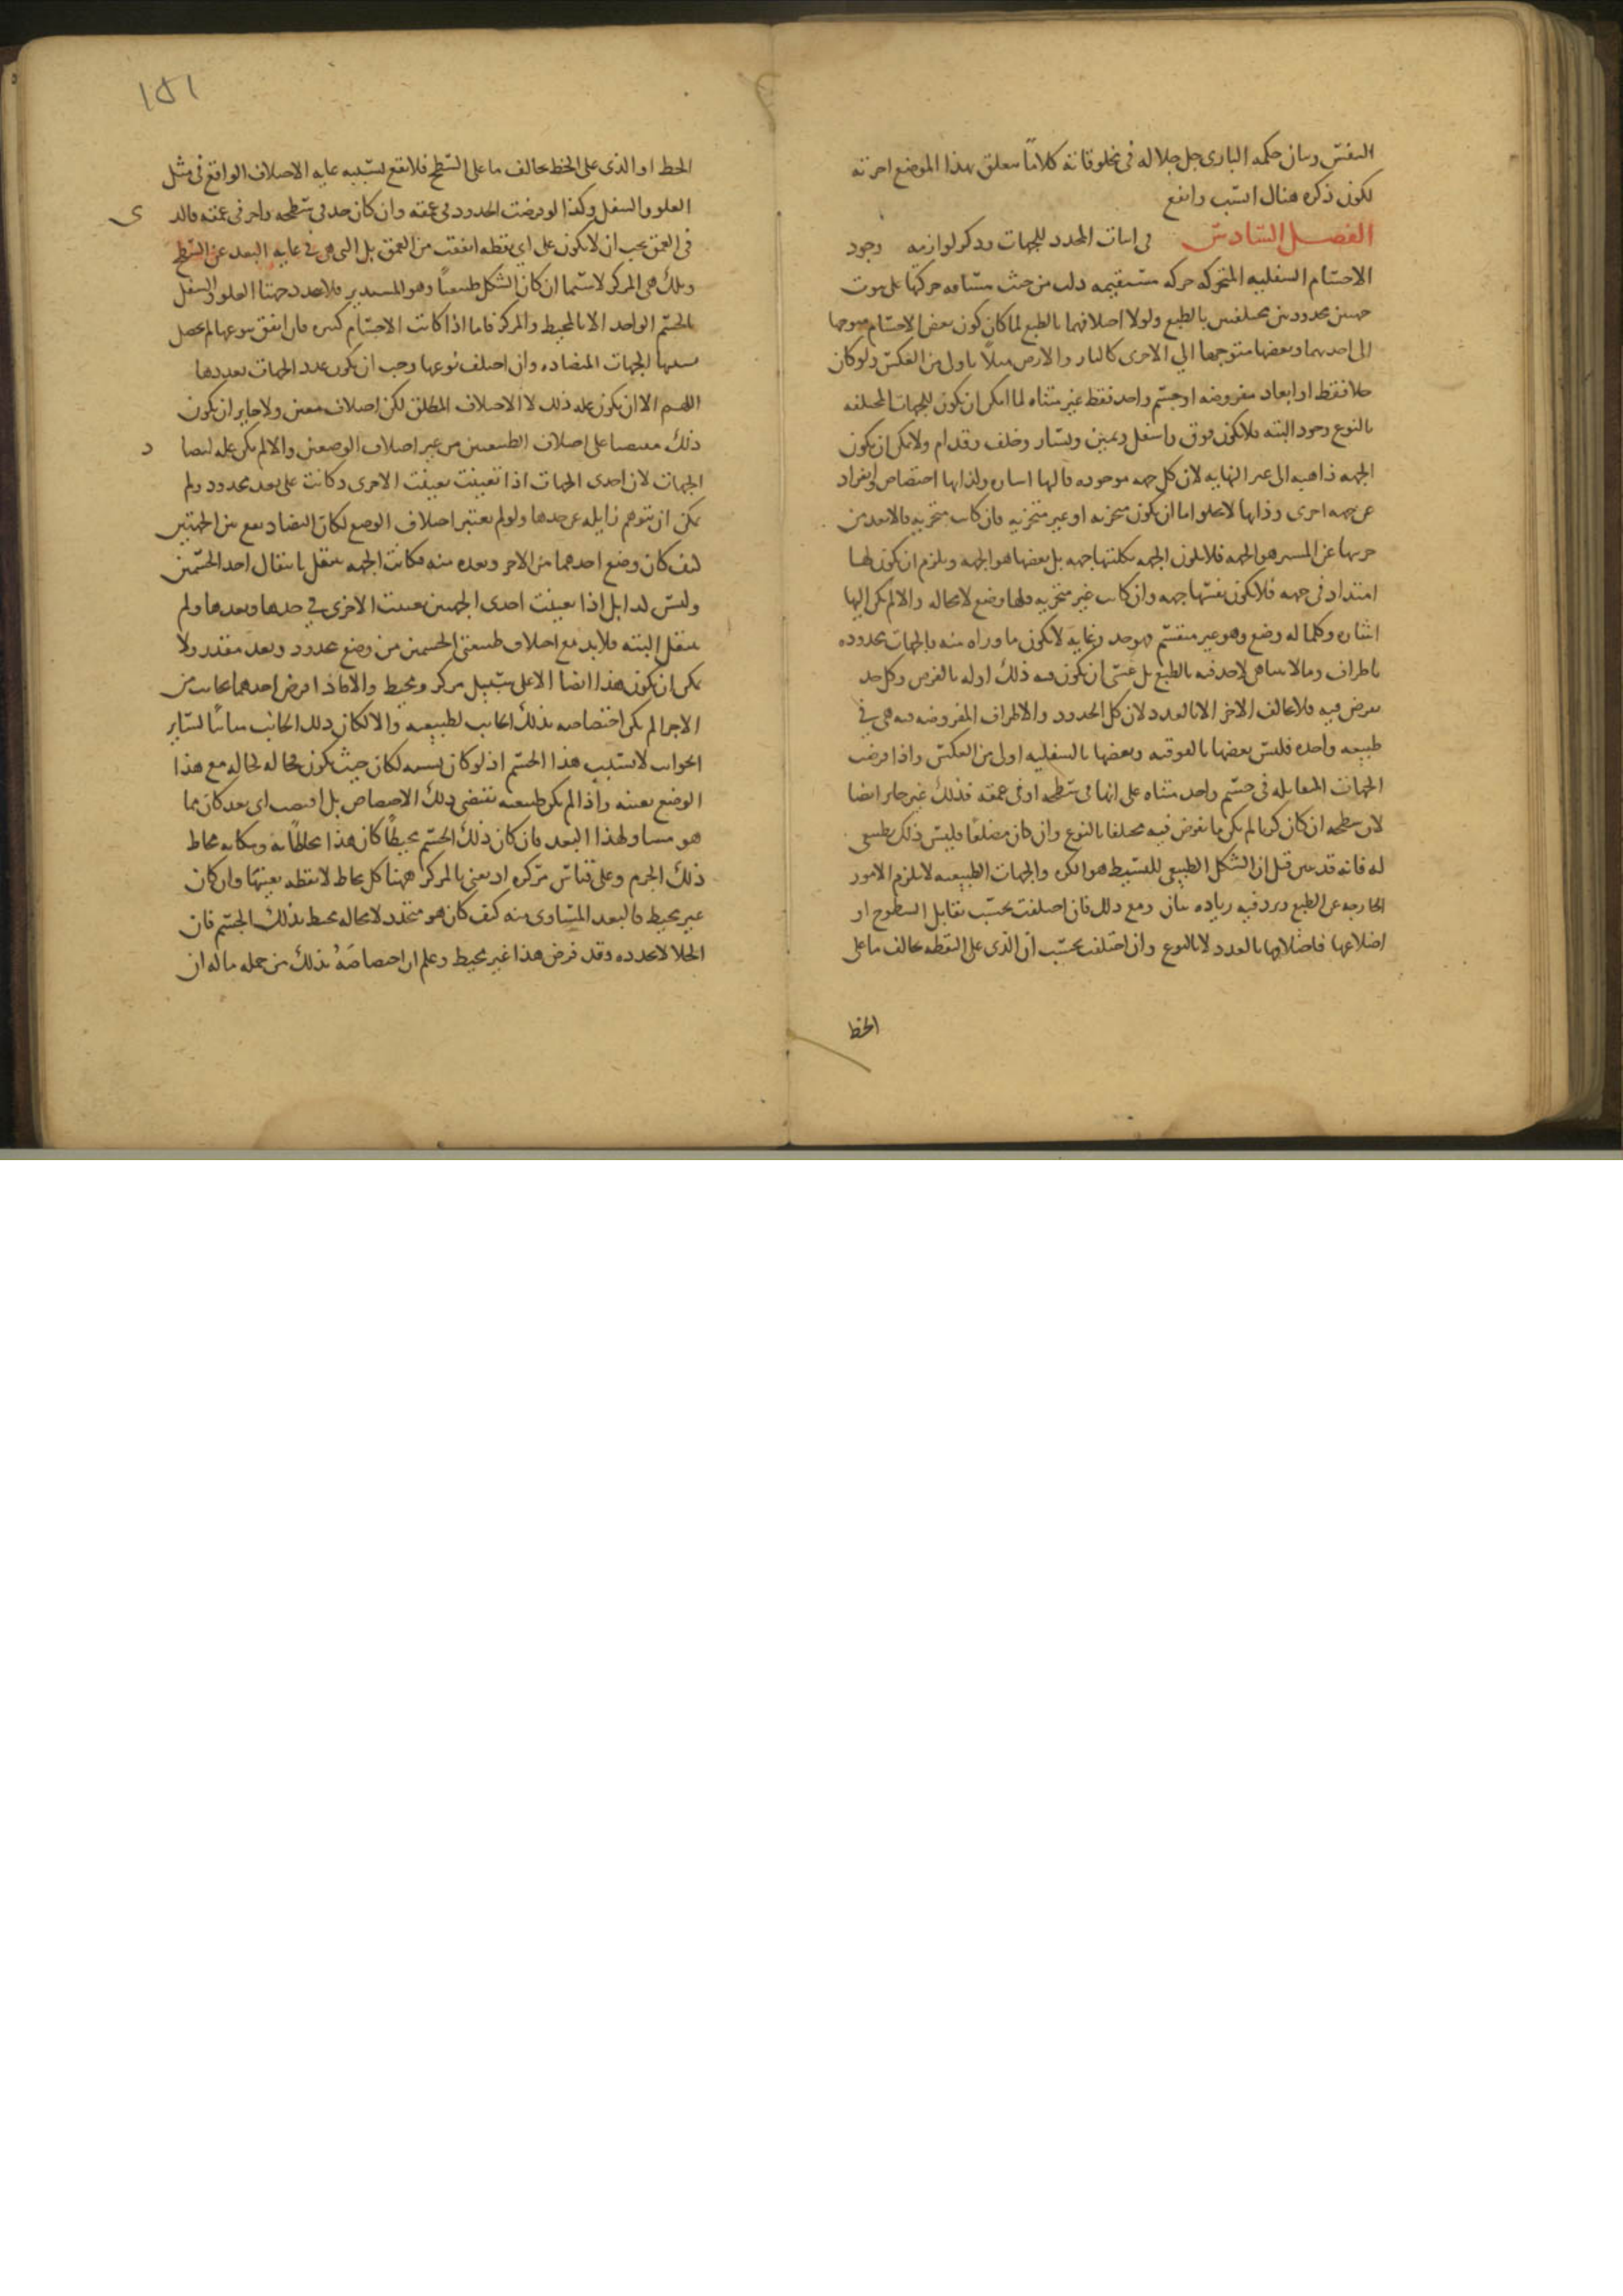 النفس وبيان حكمه البارى جل جلاله فى مخلوقاته كلامًا يتعلق بهذا الموضع اخرته
لكون ذكره هناك انسب وانفع
الفصل السادس فى اثبات المحدد للجهات وذكر لوازمه وجود
الاجسام السفليه المتحركه حركه مستقيمه دلت من حيث مسافه حركتها على ثبوت
جهتين محدودتين مختلفتين بالطبع ولولا اختلافهما بالطبع لما كان كون بعض الاجسام متوجها
الى احديهما وبعضها متوجها الى الاخرى كالنار والارض مثلاً باولى من العكس ولو كان
خلا فقط او ابعاد مفروضه او جسم واحد فقط غير متناه لما امكن ان يكون للجهات المختلفه
بالنوع وجود البته فلا يكون فوق واسفل ويمين ويسار وخلف وقدام ولا يمكن ان يكون
الجهه ذاهبه الى غير النهايه لان كل جهه موجوده فاليها اشاره ولذاتها اختصاص وانفراد
عن جهه اخرى وذاتها لا يخلو اما ان يكون متجزيه او غير متجزيه فان كانت متجزيه فالابعد من
جزيها عن المشير هو الجهه فلا يكون الجهه بكليتها جهه بل بعضها هو الجهه ويلزم ان يكون لها
امتداد فى جهه فلا يكون نفسها جهه وان كانت غير متجزيه فلها وضع لا محاله والا لم يكن اليها
اشاره وكلما له وضع وهو غير منقسم فهو حد وغايه لا يكون ما وراه منه فالجهات محدوده
باطراف وما لا يتناهى لا حد فيه بالطبع بل عسى ان يكون فيه ذلك او له بالفرض وكل حد
يفرض فيه فلا يخالف الاخر الا بالعدد لان كل الحدود والاطراف المفروضه فيه هى فى
طبيعه واحده فليس بعضها بالفوقيه وبعضها بالسفليه اولى من العكس واذا فرضت
الجهات المتقابله فى جسم واحد متناه على انها فى سطحه او فى عمقه فذلك غير جايز ايضا
لان سطحه ان كان كريا لم يكن ما يفرض فيه مختلفا بالنوع وان كان مضلعًا فليس ذلك بطبيعى
له فانه قد بين قبل ان الشكل الطبيعى للبسيط هو الكره والجهات الطبيعيه لا يلزم الامور
الخارجه عن الطبع ويرد فيه زياده بيان ومع ذلك فان اختلفت بحسب تقابل السطوح او
اضلاعها فاختلافها بالعدد لا بالنوع وان اختلفت بحسب ان الذى على النقطه يخالف ما على
الخط
١٥١
الخط او الذى على الخط يخالف ما على السطح فلا يقع بسببه غايه الاختلاف الواقع فى مثل
العلو والسفل وكذا لو فرضت الحدود فى عمقه وان كان حد فى سطحه واخر فى عمقه فالذى
فى العمق يجب ان لا يكون على اى نقطه اتفقت من العمق بل التى هى فى غايه البعد عن السطح
وتلك هى المركز لا سيما ان كان الشكل طبيعيًا وهو المستدير فلا يحدد جهتا العلو والسفل
بالجسم الواحد الا بالمحيط والمركز فاما اذا كانت الاجسام كثيره فان اتفق نوعها لم يحصل
بسببها الجهات المتضاده وان اختلف نوعها وجب ان يكون عدد الجهات بعددها
اللهم الا ان يكون علة ذلك لا الاختلاف المطلق لكن اختلاف معين ولا جايز ان يكون
ذلك مقتصرا على اختلاف الطبيعتين من غير اختلاف الوضعين والا لم يكن عله لتضاد
الجهات لان احدى الجهات اذا تعينت تعينت الاخرى وكانت على بعد محدود ولم
يمكن ان يتوهم زايله عن حدها ولو لم يعتبر اختلاف الوضع لكان التضاد يقع بين الجهتين
كيف كان وضع احدهما من الاخر وبعده منه فكانت الجهه تنتقل بانتقال احد الجسمين
وليس كذا بل اذا تعينت احدى الجهتين تعينت الاخرى فى حدها وبعدها ولم
تنتقل البته فلا بد مع اختلاف طبيعتى الجسمين من وضع محدود وبعد مقدر ولا
يمكن ان يكون هذا ايضا الا على سبيل مركز ومحيط والا فاذا فرض احدهما بجانب من
الاخر لم يكن اختصاصه بذلك الجانب لطبيعه والا لكان ذلك الجانب مباينًا لساير
الجوانب لا بسبب هذا الجسم اذ لو كان بسببه لكان حيث يكون محاله كحاله مع هذا
الوضع بعينه واذا لم يكن طبيعته تقتضى ذلك الاختصاص بل اقتضت اى بعد كان مما
هو مساو لهذا البعد فان كان ذلك الجسم محيطًا كان هذا محاطًا به ومكانه محاط
ذلك الجرم وعلى قياس مركزه اذ يعنى بالمركز ههنا كل محاط لا نقطه بعينها وان كان
غير محيط فالبعد المتساوى منه كيف كان هو متحدد لا محاله بمحيط بذلك الجسم فان
الخلا لا يحدده وقد فرض هذا غير محيط وعلم ان اختصاصَهُ بذلك من جمله ما له ان